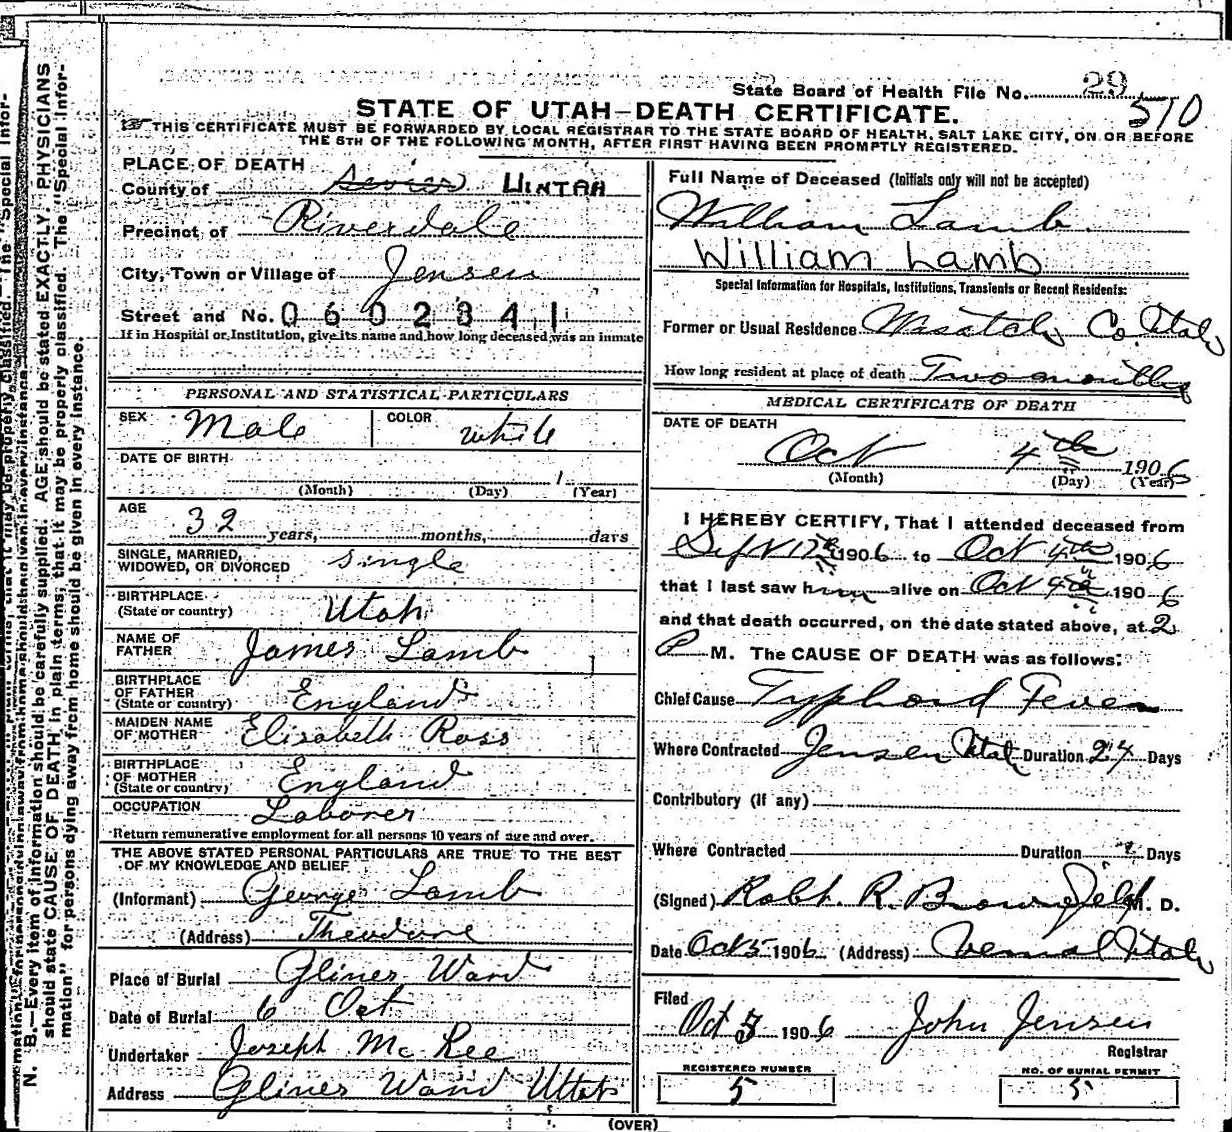 State Board of Health File No. 29
510
STATE OF UTAH—DEATH CERTIFICATE.
THIS CERTIFICATE MUST BE FORWARDED BY LOCAL REGISTRAR TO THE STATE BOARD OF HEALTH, SALT LAKE CITY, ON OR BEFORE
THE 5TH OF THE FOLLOWING MONTH, AFTER FIRST HAVING BEEN PROMPTLY REGISTERED.
N. B.—Every item of information should be carefully supplied. AGE should be stated EXACTLY. PHYSICIANS
should state CAUSE OF DEATH in plain terms, that it may be properly classified. The "Special Infor-
mation" for persons dying away from home should be given in every instance.
PLACE OF DEATH
County of UINTAH
Precinct of Riverdale
City, Town or Village of Jensen
Street and No. 0602341
If in Hospital or Institution, give its name and how long deceased was an inmate
PERSONAL AND STATISTICAL PARTICULARS
SEX Male COLOR white
DATE OF BIRTH
(Month) (Day) 1 (Year)
AGE 32 years, months, days
SINGLE, MARRIED,
WIDOWED, OR DIVORCED single
BIRTHPLACE
(State or country) Utah
NAME OF
FATHER James Lamb
BIRTHPLACE
OF FATHER
(State or country) England
MAIDEN NAME
OF MOTHER Elisabeth Ross
BIRTHPLACE
OF MOTHER
(State or country) England
OCCUPATION Laborer
Return remunerative employment for all persons 10 years of age and over.
THE ABOVE STATED PERSONAL PARTICULARS ARE TRUE TO THE BEST
OF MY KNOWLEDGE AND BELIEF
(Informant) George Lamb
(Address) Theodore
Place of Burial Glines Ward
Date of Burial 6 Oct
Undertaker Joseph McKee
Address Glines Ward Utah
Full Name of Deceased (Initials only will not be accepted)
William Lamb
William Lamb
Special Information for Hospitals, Institutions, Transients or Recent Residents:
Former or Usual Residence Wasatch Co. Utah
How long resident at place of death Two months
MEDICAL CERTIFICATE OF DEATH
DATE OF DEATH
Oct 4th 1906
(Month) (Day) (Year)
I HEREBY CERTIFY, That I attended deceased from
Sept 17th 1906 to Oct 4th 1906
that I last saw him alive on Oct 4th 1906
and that death occurred, on the date stated above, at 2
P M. The CAUSE OF DEATH was as follows:
Chief Cause Typhoid Fever
Where Contracted Jensen Utah Duration 24 Days
Contributory (if any)
Where Contracted Duration Days
(Signed) Robt. R. Brownfield M. D.
Date Oct 5 1906 (Address) Vernal Utah
Filed
Oct 1906 John Jensen
Registrar
REGISTERED NUMBER
5
NO. OF BURIAL PERMIT
5
(OVER)